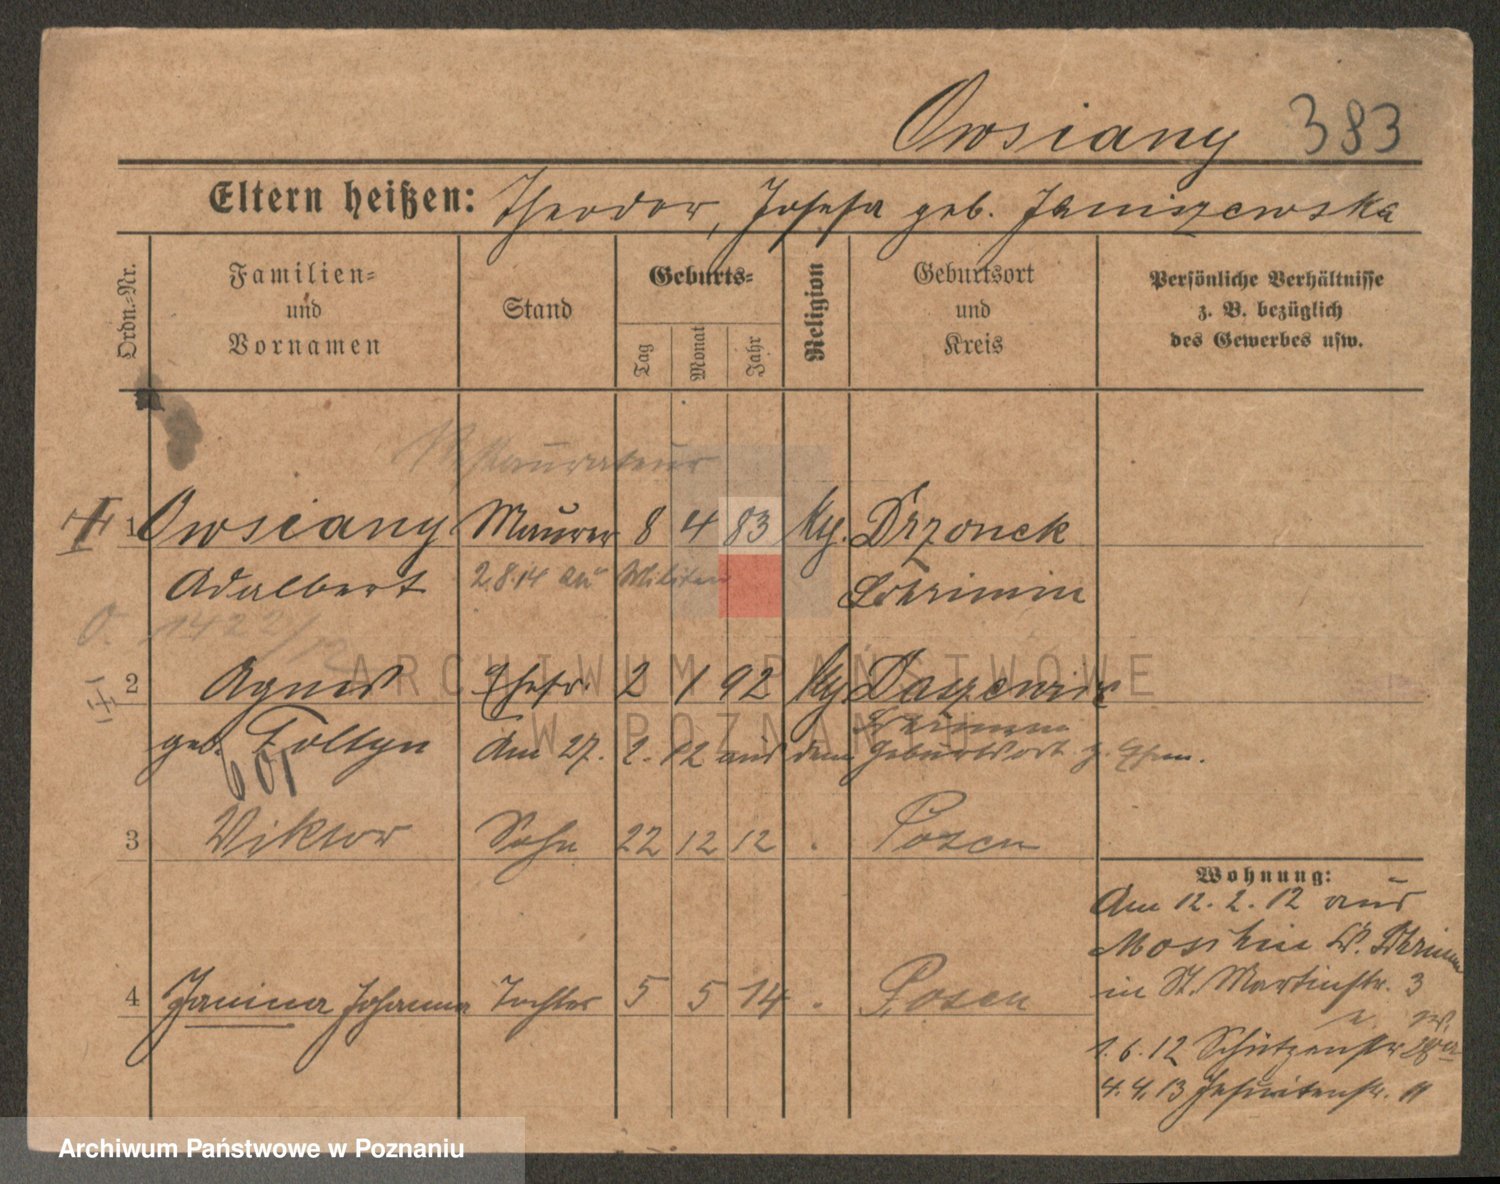 Owsiany 383
Eltern heißen: Theodor, Josefa geb. Janiszewska
Ordn.-Nr.
Familien-
und
Vornamen
Stand
Geburts-
Tag
Monat
Jahr
Religion
Geburtsort
und
Kreis
Persönliche Verhältnisse
z. B. bezüglich
des Gewerbes usw.
Restaurateur
1 Owsiany Maurer 8 4 83 kg. Drzonek
Adalbert 2.8.14 zu Militär Schrimm
O. 1422/12
2 Agnes Ehefr. 2 1 92 kg
Schrimm
geb. Foltyn Am 27. 2. 12 aus dem Geburtsort z. Ehem.
601
3 Viktor Sohn 22 12 12 . Posen
4 Janina Johanna Tochter 5 5 14 . Posen
Wohnung:
Am 12. 2. 12 aus
Moschin Kr. Schrimm
in St. Martinstr. 3
1. 6. 12 Schützenstr
4. 4. 13 Jesuitenstr. 11
ARCHIWUM PAŃSTWOWE
W POZNANIU
Archiwum Państwowe w Poznaniu